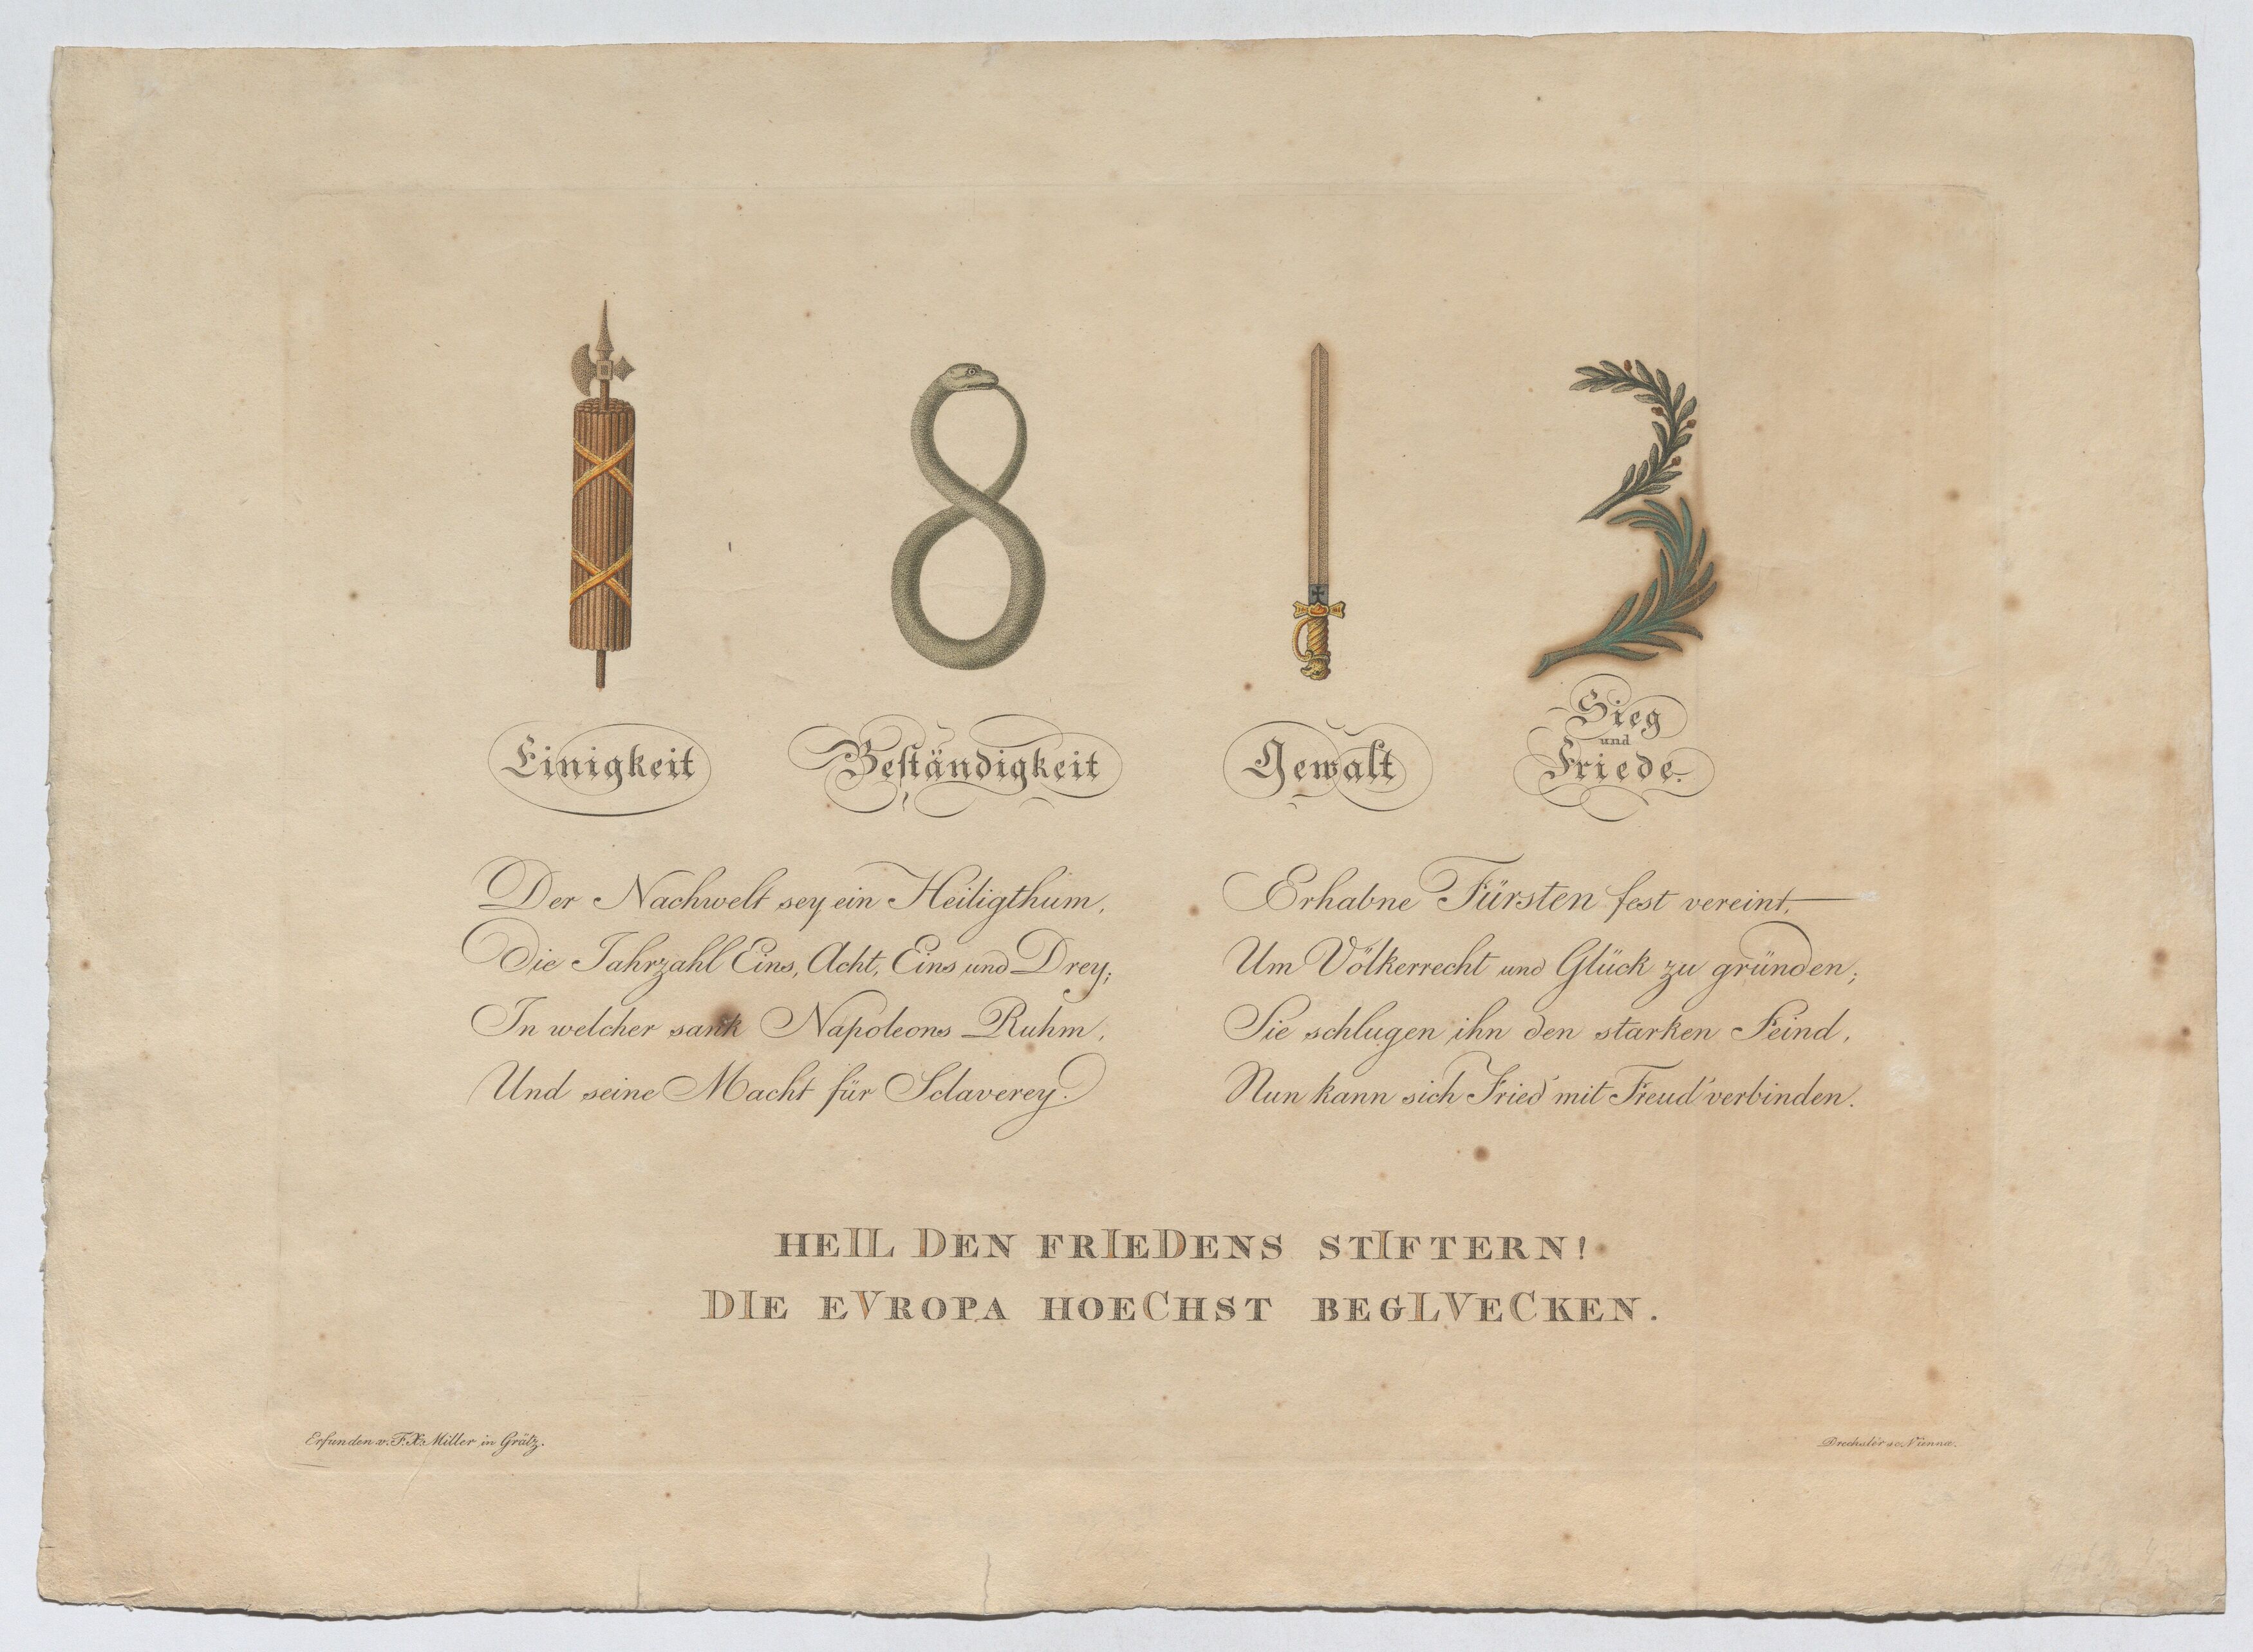 Einigkeit
Beständigkeit
Gewalt
Sieg
und
Friede.
Der Nachwelt sey ein Heiligthum,
Die Jahrzahl Eins, Acht, Eins und Drey;
In welcher sank Napoleons Ruhm,
Und seine Macht für Sclaverey.
Erhabne Fürsten fest vereint,—
Um Völkerrecht und Glück zu gründen;
Sie schlugen ihn den starken Feind,
Nun kann sich Fried' mit Freud' verbinden.
HEIL DEN FRIEDENS STIFTERN!
DIE EVROPA HOECHST BEGLVECKEN.
Erfunden v. F. X. Miller in Grätz.
Drechsler sc. Vienna.